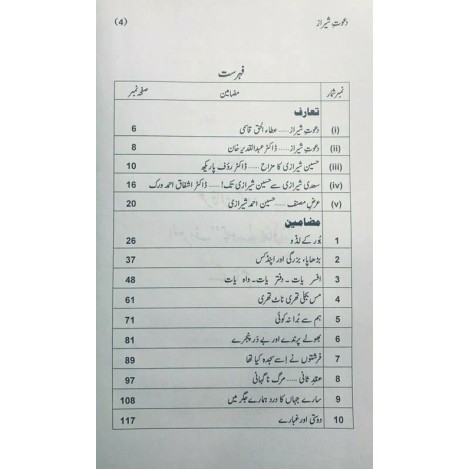 دعوتِ شیراز (4)
فہرست
نمبر شمار مضامین صفحہ نمبر
تعارف
(i) دعوتِ شیراز ..... عطاء الحق قاسمی 6
(ii) دعوتِ شیراز ..... ڈاکٹر عبدالقدیر خان 8
(iii) حسین شیرازی کا مزاح ..... ڈاکٹر رؤف پاریکھ 10
(iv) سعدی شیرازی سے حسین شیرازی تک! ..... ڈاکٹر اشفاق احمد ورک 16
(v) عرضِ مصنف ..... حسین احمد شیرازی 20
مضامین
1 بُور کے لڈو 26
2 بڑھاپا، بزرگی اور اپنڈکس 37
3 افسر یات۔ دفتر یات۔ واہ یات 48
4 مس بجلی تھری ناٹ تھری 61
5 ہم سے بُرا نہ کوئی 71
6 بھولے پرندے اور بے در پنجرے 81
7 فرشتوں نے اِسے سجدہ کیا تھا 89
8 عقدِ ثانی ..... مرگِ ناگہانی 97
9 سارے جہاں کا درد ہمارے جگر میں 108
10 دوستی اور غبارے 117